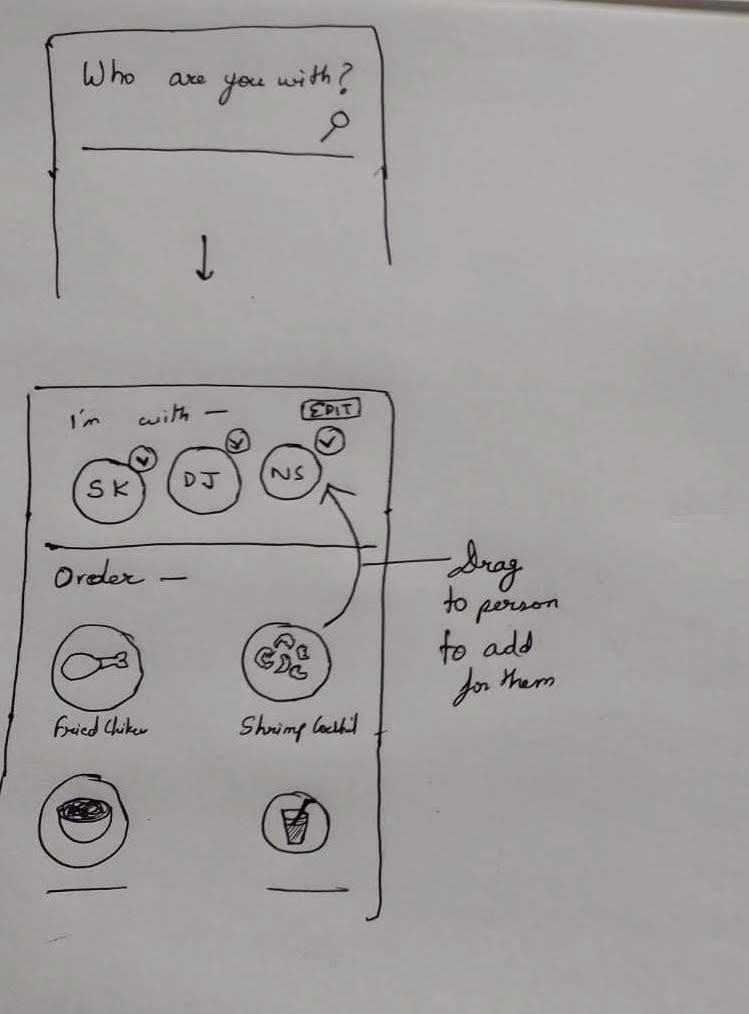 Who are you with?
I'm with —
EDIT
SK
DJ
NS
Order —
Drag
to person
to add
for them
Fried Chiken
Shrimp Cocktail